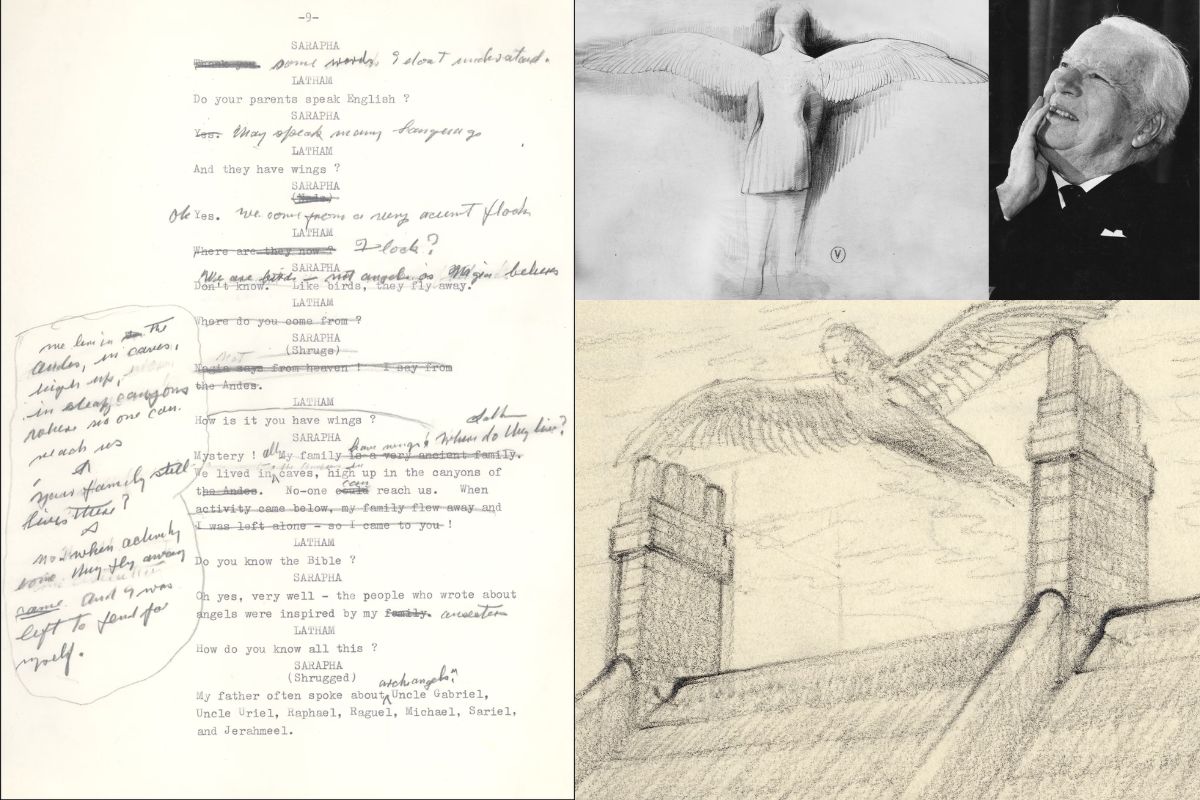 -9-
SARAPHA
some words I dont understand.
LATHAM
Do your parents speak English ?
SARAPHA
Yes. They speak many languages
LATHAM
And they have wings ?
SARAPHA
(Nods)
Oh Yes. We come from a very acient flock
LATHAM
Where are they now ? Flock?
SARAPHA
We are birds - not angels as believes
Don't know. Like birds, they fly away.
LATHAM
Where do you come from ?
SARAPHA
(Shrugs)
not
Nagia says from heaven ! I say from
the Andes.
LATHAM
How is it you have wings ?
SARAPHA
have wings! Where do they live?
Mystery ! all My family is a very ancient family.
We lived in caves, high up in the canyons of
the Andes. No-one could can reach us. When
activity came below, my family flew away and
I was left alone - so I came to you !
LATHAM
Do you know the Bible ?
SARAPHA
Oh yes, very well - the people who wrote about
angels were inspired by my family. ancestors
LATHAM
How do you know all this ?
SARAPHA
(Shrugged)
archangels
My father often spoke about Uncle Gabriel,
Uncle Uriel, Raphael, Raguel, Michael, Sariel,
and Jerahmeel.
We live in the
Andes, in caves,
high up,
in steep canyons
where no one can
reach us
your family still
lives there?
No when activity
they fly away
came. And I was
left to fend for
myself.
V